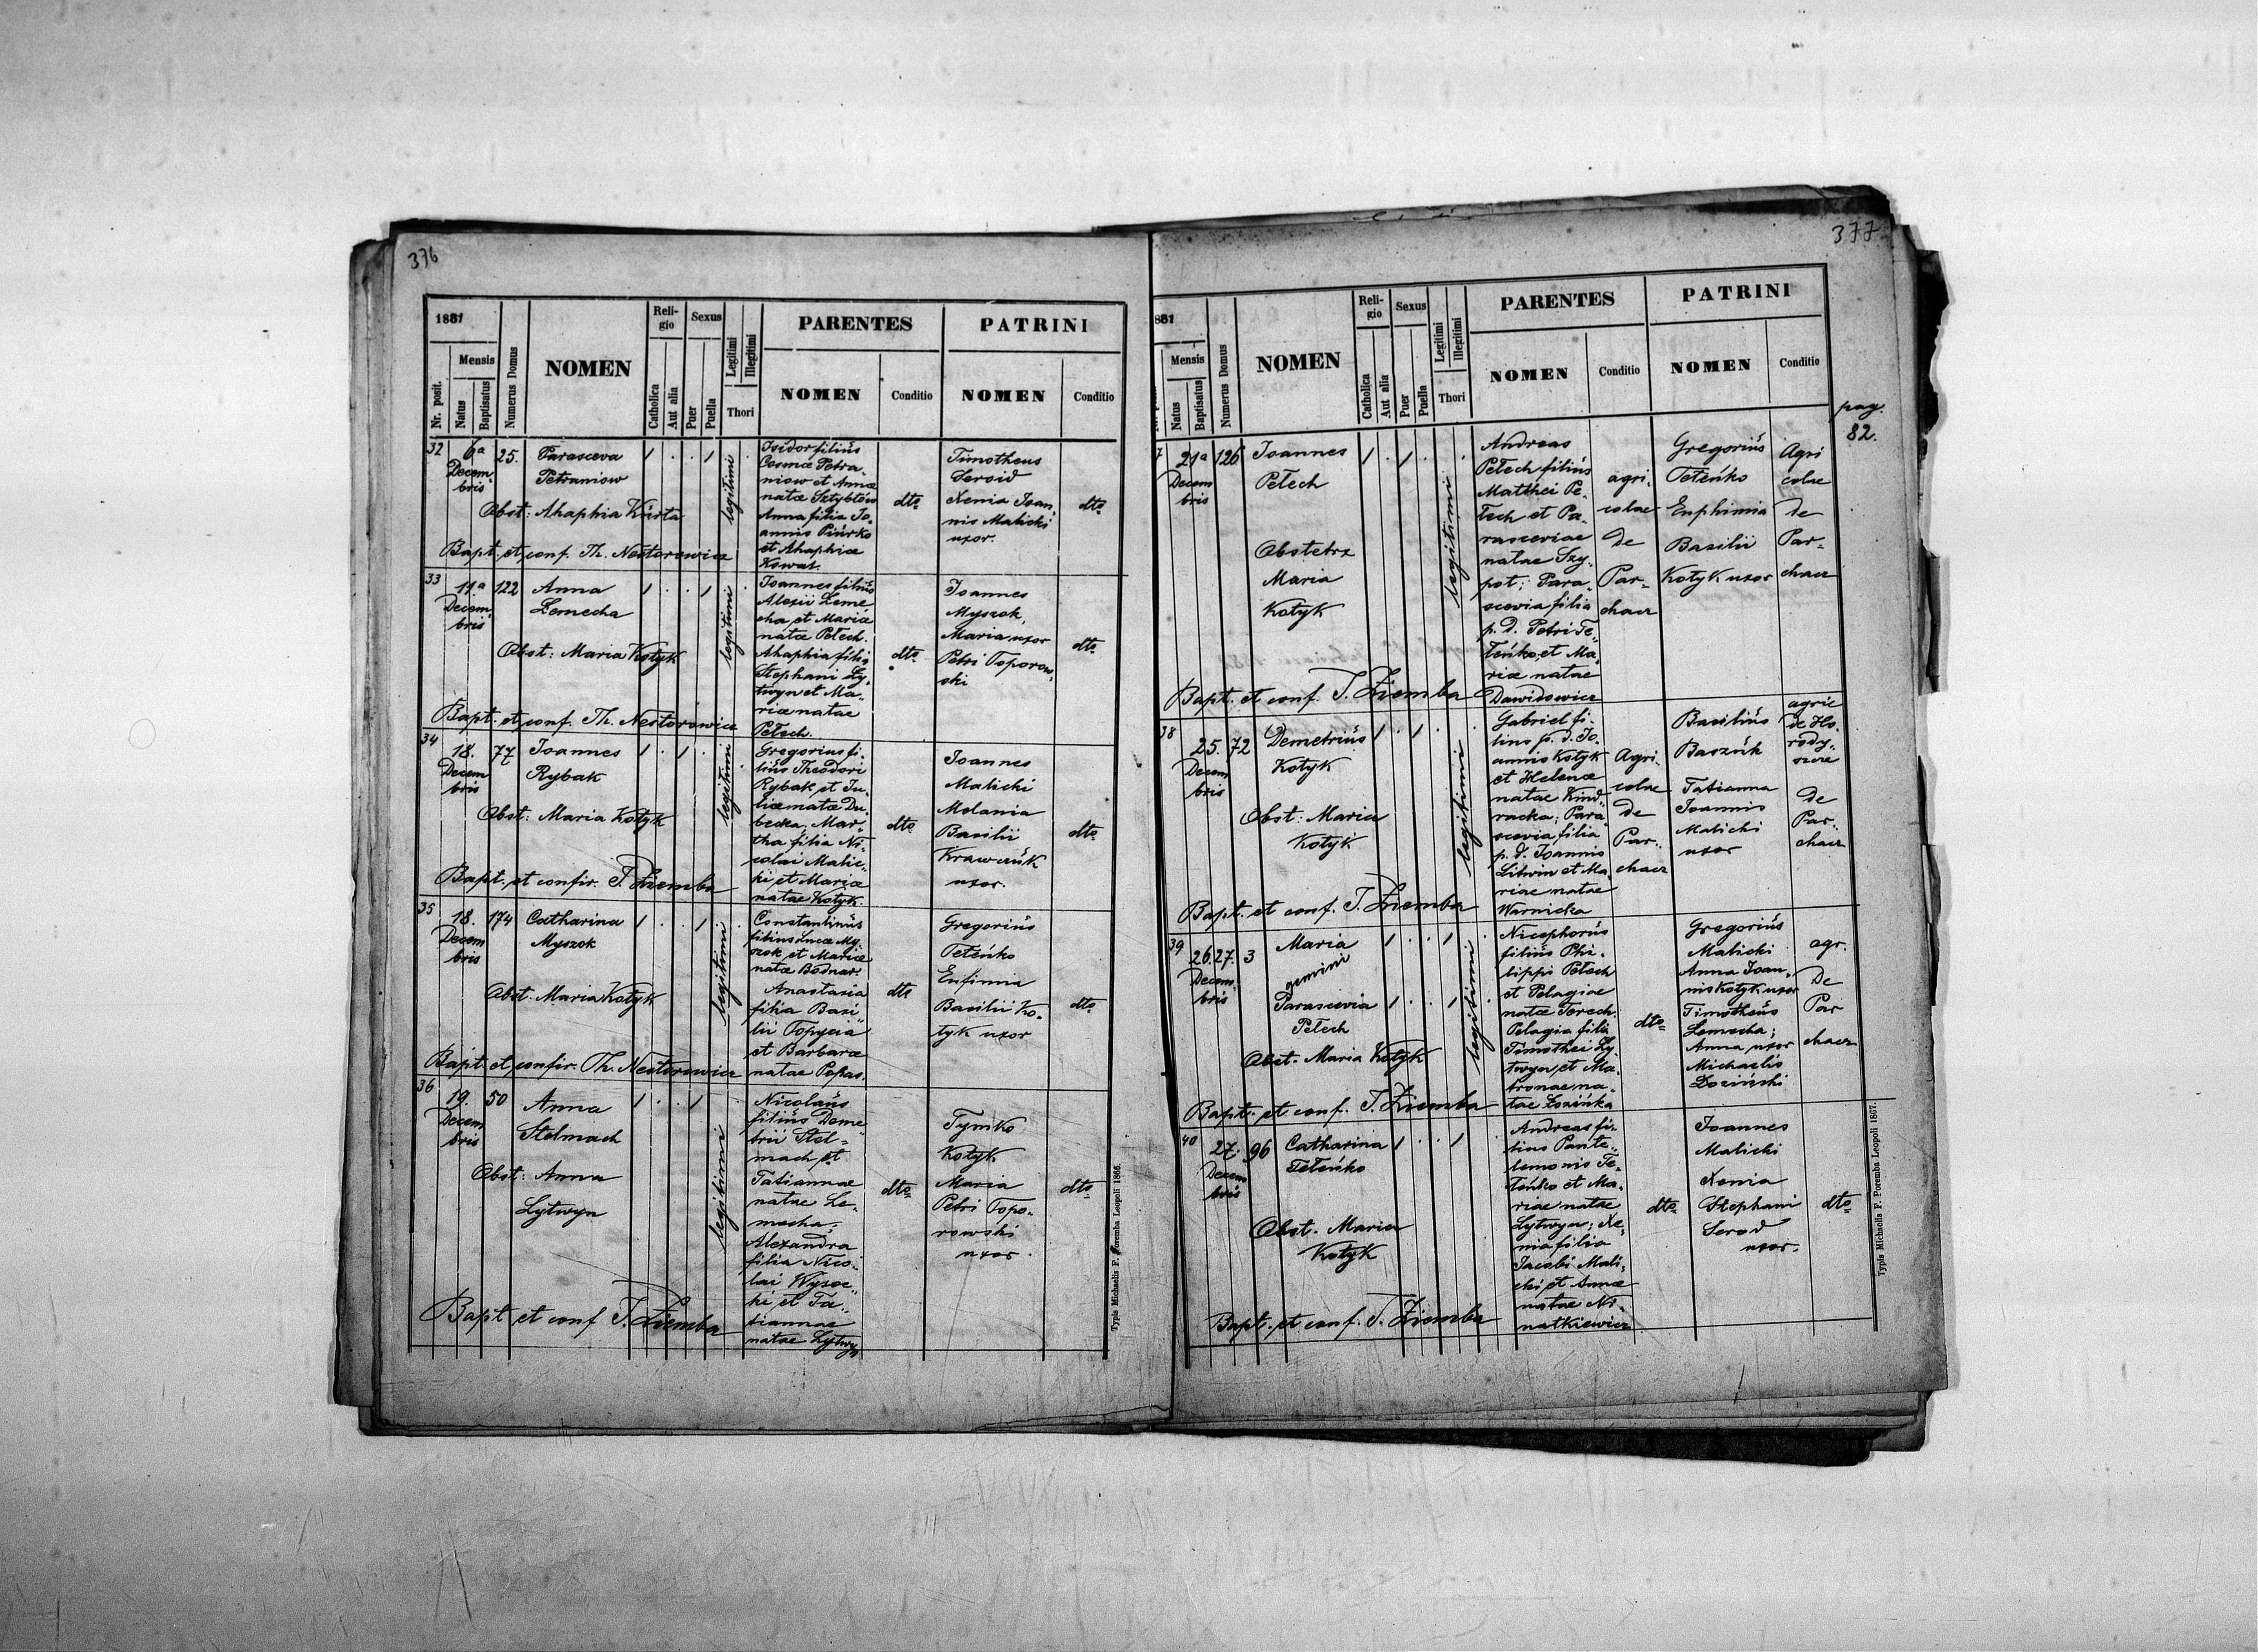 376
1881
Nr. posit.
Mensis
Natus
Baptisatus
Numerus Domus
NOMEN
Reli-
gio
Catholica
Aut alia
Sexus
Puer
Puella
Legitimi
Illegitimi
Thori
PARENTES
NOMEN
Conditio
PATRINI
NOMEN
Conditio
32
6a
Decem
bris
25.
Parasceva
Petraniow
Obst: Ahaphia Kurta
Bapt. et conf. Th. Nestorowicz
legitimi
Isidor filius
Cosmæ Petra-
niow et Annæ
natæ Sztybtow
Anna filia Jo-
annis Piurko
et Ahaphiæ
Kowal.
dto
Timotheus
Seroid
Xenia Joan,
nis Malicki
uxor.
dto
33
11a
Decem
bris
122
Anna
Lemecha
Obst: Maria Kotyk
Bapt. et conf. Th. Nestorowicz
legitimi
Joannes filius
Alexii Leme
cha et Mariæ
natæ Petech.
Ahaphia filia
Stephani Ly-
twyn et Ma-
riæ natae
Petech.
dto
Joannes
Myszok,
Maria uxor
Petri Toporow,
ski
dto
34
18.
Decem
bris
77
Joannes
Rybak
Obst: Maria Kotyk
Bapt. et confir. T. Ziemba
legitimi
Gregorius fi-
lius Theodori
Rybak et Ju-
liæ natæ Du-
becka; Mar-
tha filia Ni-
colai Malic-
ki et Mariæ
natae Kotyk
dto
Joannes
Malicki
Melania
Basilii
Krawczuk
uxor.
dto
35
18.
Decem
bris
174
Catharina
Myszok
Obst: Maria Kotyk
Bapt. et confir. Th. Nestorowicz
legitimi
Constantinus
filius Lucæ My-
szok et Mariæ
natæ Bodnar.
Anastasia
filia Basi
lii Topycia
et Barbaræ
natae Papas.
dto
Gregorius
Teteńko
Eufimia
Basilii Ko-
tyk uxor
dto
36
19.
Decem
bris
50
Anna
Stelmach
Obst: Anna
Lytwyn
Bapt et conf T. Ziemba
legitimi
Nicolaus
filius Deme
trii Stel-
mach et
Tatiannae
natae Le-
mecha;
Alexandra
filia Nico-
lai Wysoc-
ki et Ta-
tiannae
natae Lytwyn
dto
Tymko
Kotyk
Maria
Petri Topo-
rowski
uxor.
dto
Typis Michaelis F. Poremba Leopoli 1866.
377
pag.
82.
881
Mensis
Natus
Baptisatus
Numerus Domus
NOMEN
Reli-
gio
Catholica
Aut alia
Sexus
Puer
Puella
Legitimi
Illegitimi
Thori
PARENTES
NOMEN
Conditio
PATRINI
NOMEN
Conditio
7
21a
Decem
bris
126
Joannes
Petech
Obstetrx
Maria
Kotyk
Bapt. et conf. T. Ziemba
legitimi
Andreas
Petech filius
Matthei Pe-
tech et Pa-
rasceviae
natae Szy-
pot; Para-
scevia filia
p. d. Petri Te-
teńko, et Ma-
riæ natae
Dawidowicz
agri-
colae
de
Par-
chacz
Gregorius
Teteńko
Euphimia
Basilii
Kotyk uxor
Agri
colae
de
Par-
chacz
38
25.
Decem
bris
72
Demetrius
Kotyk
Obst: Maria
Kotyk
Bapt. et conf. T. Ziemba
legitimi
Gabriel fi-
lius p. d. Jo-
annis Kotyk
et Helenæ
natae Kind-
racka; Para
scevia filia
p. d. Joannis
Litwin et Ma-
riae natae
Warnicka
Agri-
colae
de
Par-
chacz
Basilius
Baszuk
Tatianna
Joannis
Malicki
uxor
agric
de Ho-
rody-
szcze
de
Par-
chacz
39
26. 27.
Decem.
bris
3
Maria
gemini
Parascevia
Petech
Obst. Maria Kotyk
Bapt. et conf. T. Ziemba
legitimi
Nicephorus
filius Phi-
lippi Petech
et Pelagiæ
natæ Torech.
Pelagia filia
Timothei Ly-
twyn et Ma-
tronae na-
tae Łozińka
dto
Gregorius
Malicki
Anna Joan-
nis Kotyk uxor
Timotheus
Lemecha;
Anna uxor
Michaelis
Łoziński
agr.
De
Par
chacz
40
27.
Decem
bris
96
Catharina
Teteńko
Obst. Maria
Kotyk
Bapt. et conf. T. Ziemba
Andreas fi-
lius Pante-
lemonis Te-
teńko et Ma-
riae natae
Lytwyn; Xe-
nia filia
Jacobi Mali-
cki et Annæ
natae Ni-
natkiewicz
dto
Joannes
Malicki
Xenia
Stephani
Serod
uxor.
dto
Typis Michaelis F. Poremba Leopoli 1867.